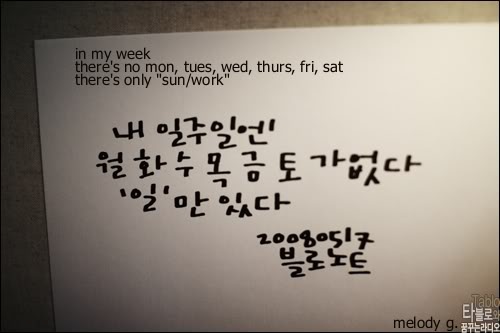 in my week
there's no mon, tues, wed, thurs, fri, sat
there's only "sun/work"
내 일주일엔
월 화 수 목 금 토 가 없다
'일'만 있다
20080517
블로노트
Tablo
타블로의
꿈꾸는라디오
melody g.